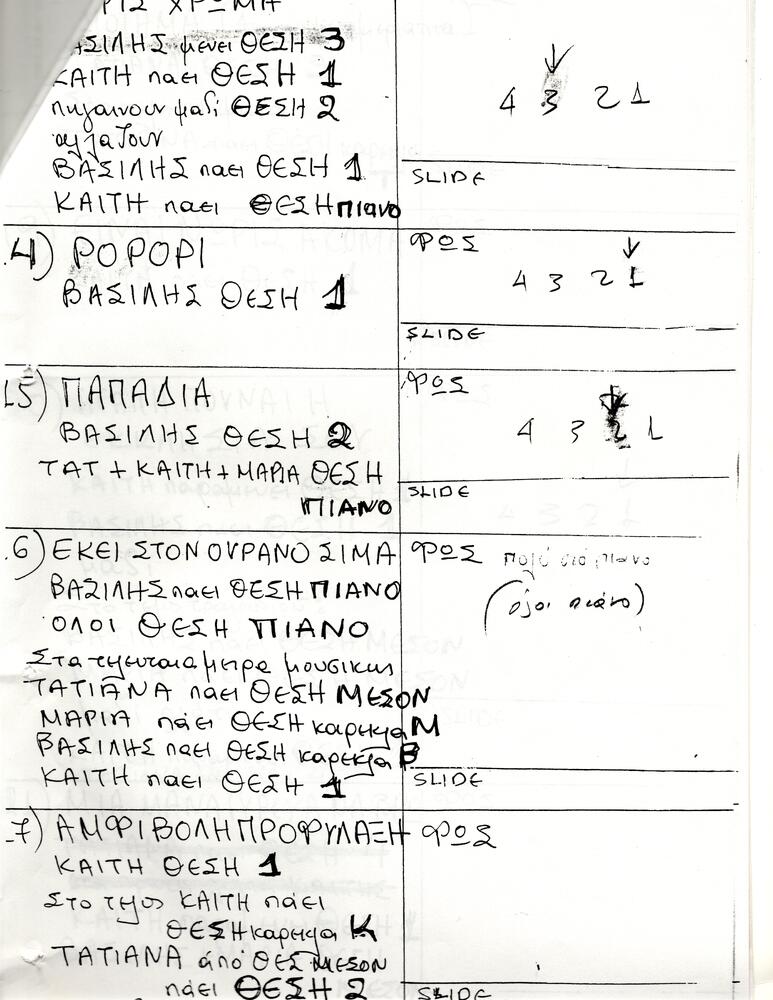 ΡΙΣ ΧΡΩΜΑ
ΑΣΙΛΗΣ μενει ΘΕΣΗ 3
ΚΑΙΤΗ παει ΘΕΣΗ 1
πηγαινουν μαζι ΘΕΣΗ 2
αλλαζουν
ΒΑΣΙΛΗΣ παει ΘΕΣΗ 1
ΚΑΙΤΗ παει ΘΕΣΗ πιανο
4 3 2 1
SLIDE
4) ΡΟΡΟΡΙ
ΒΑΣΙΛΗΣ ΘΕΣΗ 1
ΦΩΣ
4 3 2 1
SLIDE
5) ΠΑΠΑΔΙΑ
ΒΑΣΙΛΗΣ ΘΕΣΗ 2
ΤΑΤ + ΚΑΙΤΗ + ΜΑΡΙΑ ΘΕΣΗ
ΠΙΑΝΟ
ΦΩΣ
4 3 2 1
SLIDE
6) ΕΚΕΙ ΣΤΟΝ ΟΥΡΑΝΟ ΣΙΜΑ
ΒΑΣΙΛΗΣ παει ΘΕΣΗ ΠΙΑΝΟ
ΟΛΟΙ ΘΕΣΗ ΠΙΑΝΟ
Στα τελευταια μετρα μουσικης
ΤΑΤΙΑΝΑ παει ΘΕΣΗ ΜΕΣΟΝ
ΜΑΡΙΑ πάει ΘΕΣΗ καρεκλα Μ
ΒΑΣΙΛΗΣ παει ΘΕΣΗ καρεκλα Β
ΚΑΙΤΗ παει ΘΕΣΗ 1
ΦΩΣ πολύ στο πιανο
(όλοι πιάνο)
SLIDE
7) ΑΜΦΙΒΟΛΗ ΠΡΟΦΥΛΑΞΗ
ΚΑΙΤΗ ΘΕΣΗ 1
Στο τελος ΚΑΙΤΗ πάει
ΘΕΣΗ καρεκλα Κ
ΤΑΤΙΑΝΑ άπό ΘΕΣ ΜΕΣΟΝ
πάει ΘΕΣΗ 2
ΦΩΣ
SLIDE